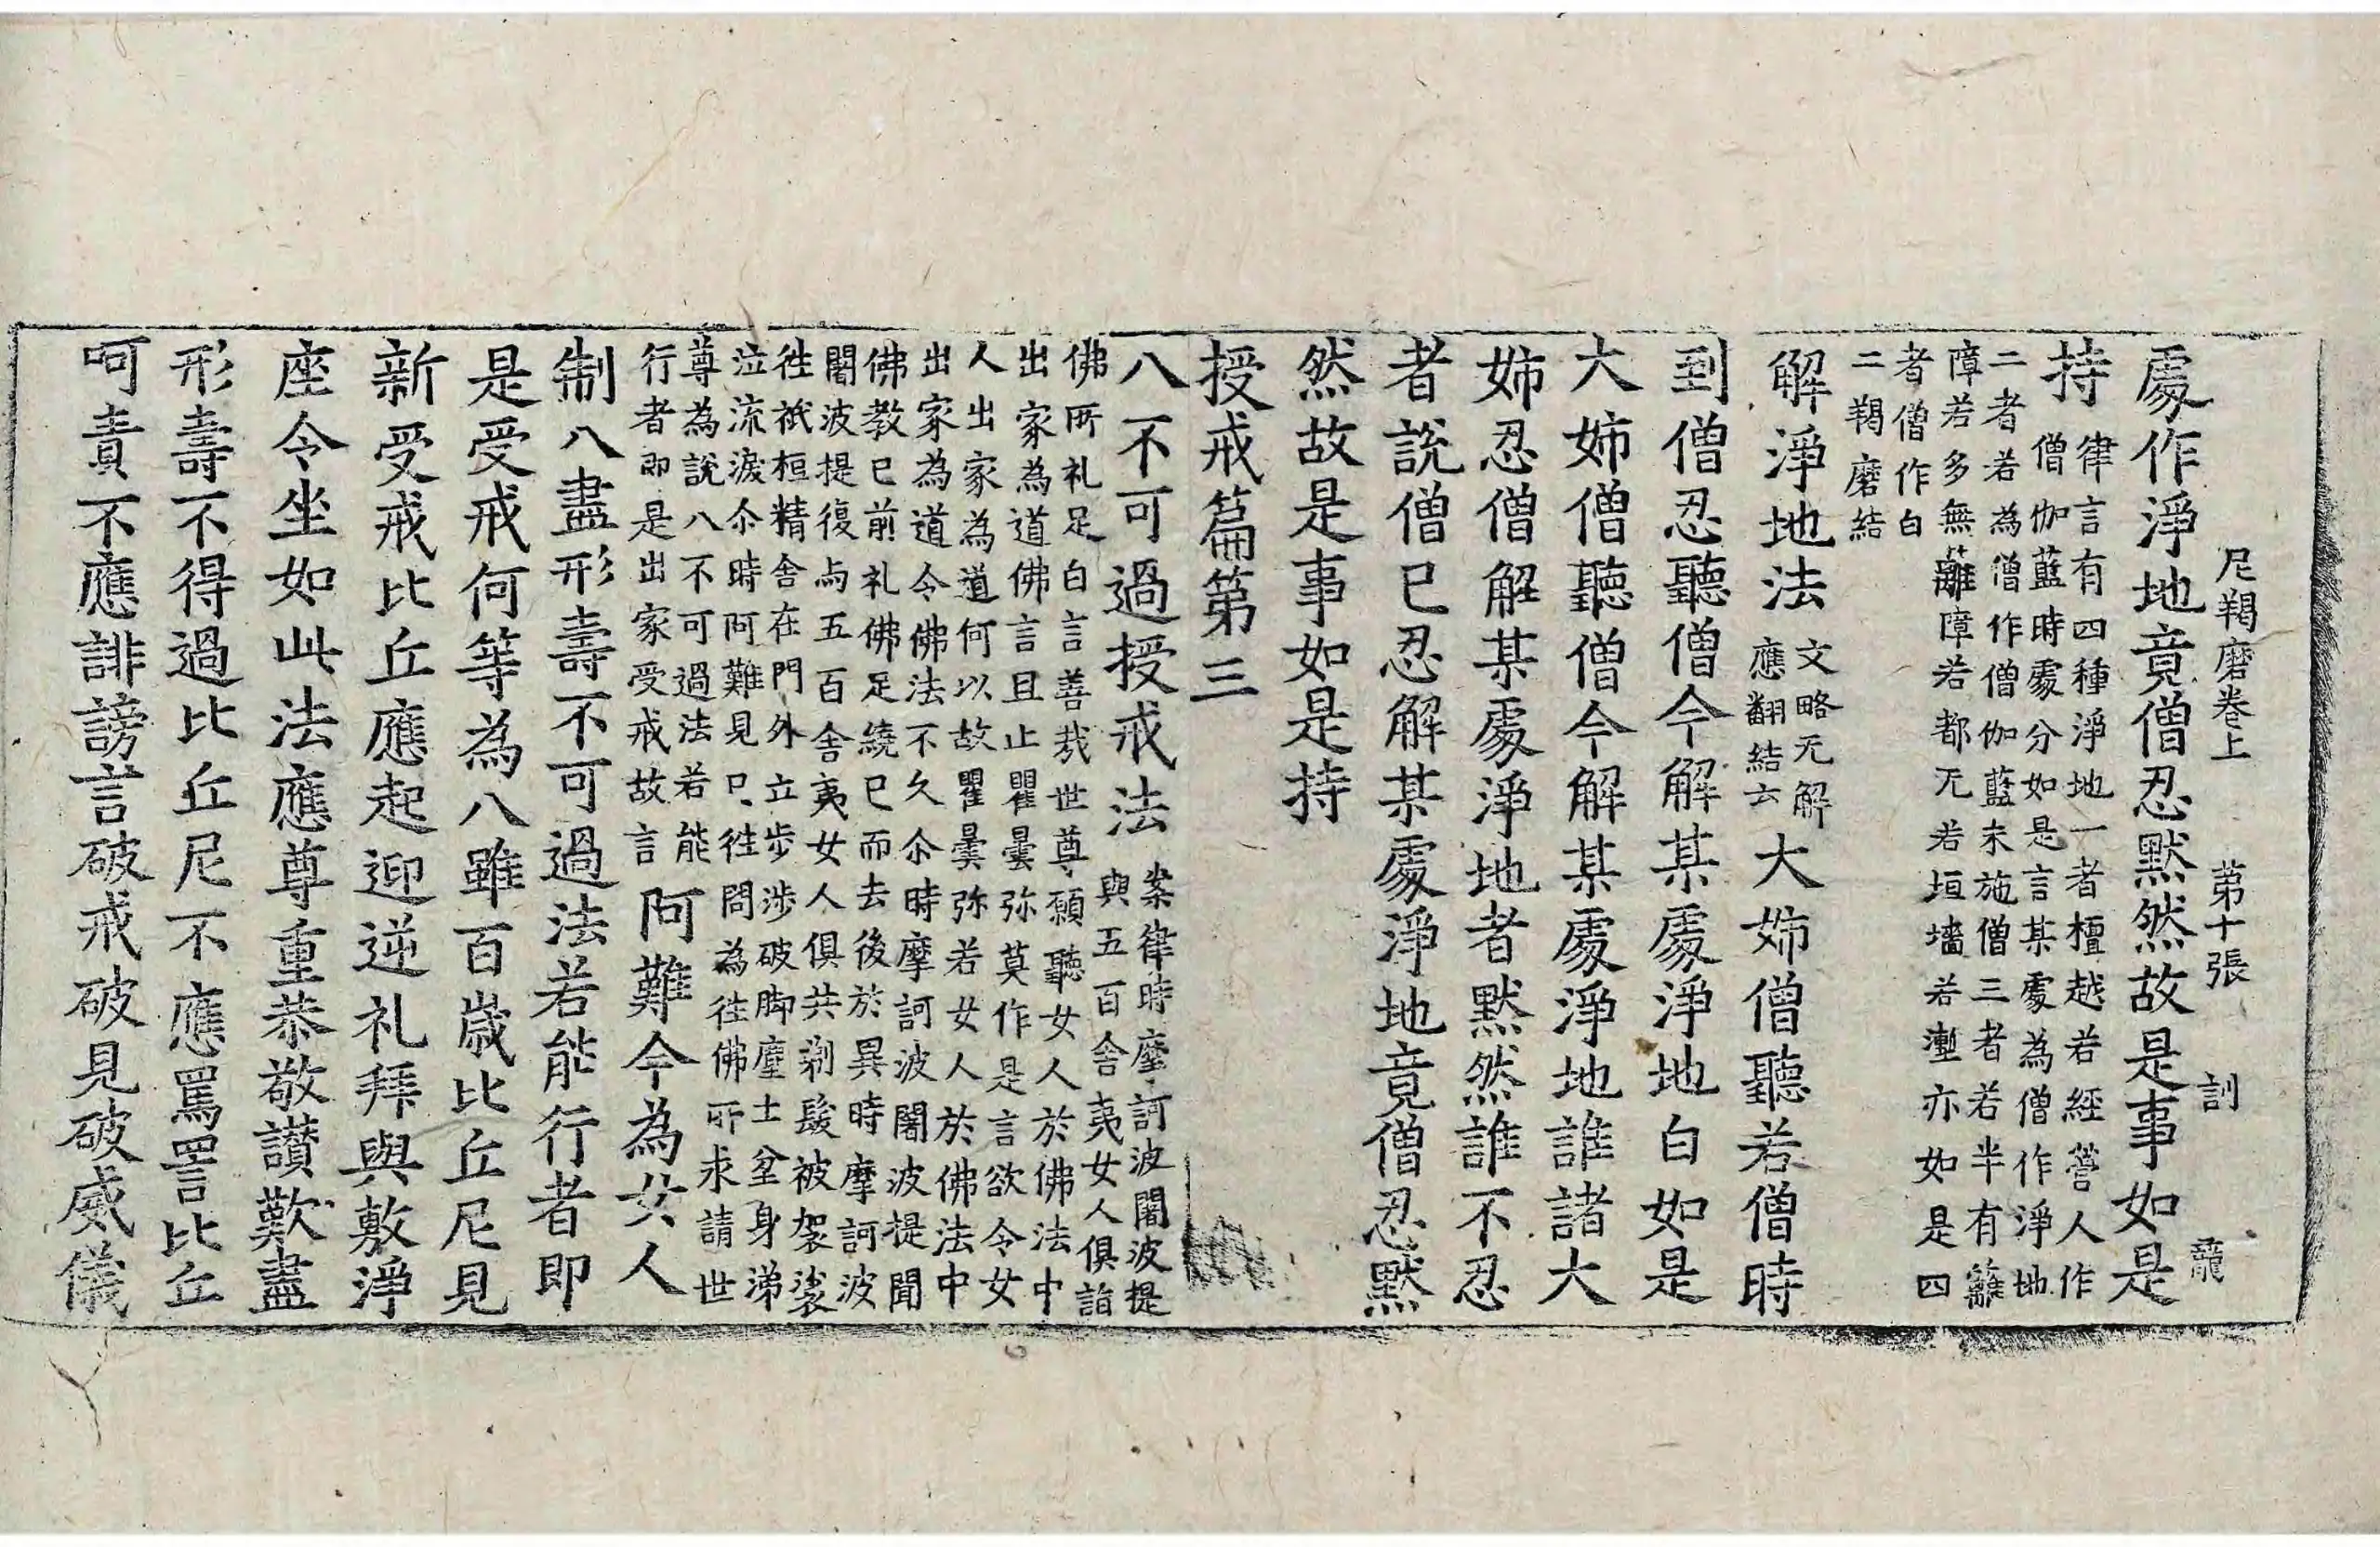 尼羯磨卷上 第十張 訓
處作淨地竟僧忍默然故是事如是
持 律言有四種淨地一者檀越若經營人作
僧伽藍時處分如是言某處為僧作淨地
二者若為僧作僧伽藍未施僧三者若半有籬
障若多無籬障若都无若垣墻若壍亦如是四
者僧作白
二羯磨結
解淨地法 文略无解
應翻結云 大姉僧聽若僧時
到僧忍聽僧今解某處淨地白如是
大姉僧聽僧今解某處淨地誰諸大
姉忍僧解某處淨地者默然誰不忍
者說僧已忍解某處淨地竟僧忍默
然故是事如是持
授戒篇第三
八不可過授戒法 案律時摩訶波闍波提
與五百舍夷女人俱詣
佛所礼足白言善哉世尊願聽女人於佛法中
出家為道佛言且止瞿曇弥莫作是言欲令女
人出家為道何以故瞿曇弥若女人於佛法中
出家為道令佛法不久尒時摩訶波闍波提聞
佛教已前礼佛足繞已而去後於異時摩訶波
闍波提復与五百舍夷女人俱共剃髮被袈裟
徃祇桓精舍在門外立步涉破脚塵土坌身涕
泣流淚尒時阿難見已徃問為徃佛所求請世
尊為說八不可過法若能
行者即是出家受戒故言 阿難今為女人
制八盡形壽不可過法若能行者即
是受戒何等為八雖百歲比丘尼見
新受戒比丘應起迎逆礼拜與敷淨
座令坐如此法應尊重恭敬讃歎盡
形壽不得過比丘尼不應罵詈比丘
呵責不應誹謗言破戒破見破威儀